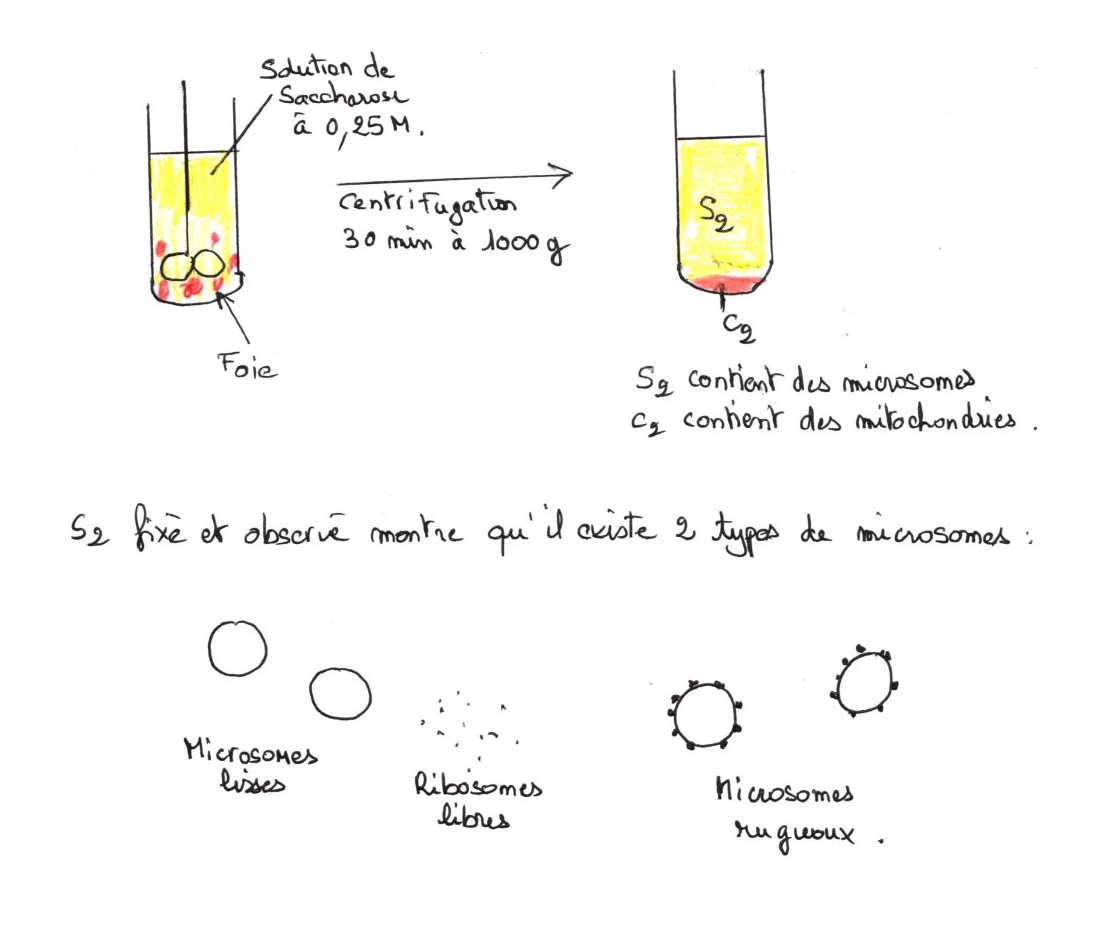 Solution de
Saccharose
à 0,25 M.
Centrifugation
30 min à 1000 g
Foie
S2
C2
S2 contient des microsomes
C2 contient des mitochondries.
S2 fixé et observé montre qu'il existe 2 types de microsomes :
Microsomes
lisses
Ribosomes
libres
Microsomes
rugueux.